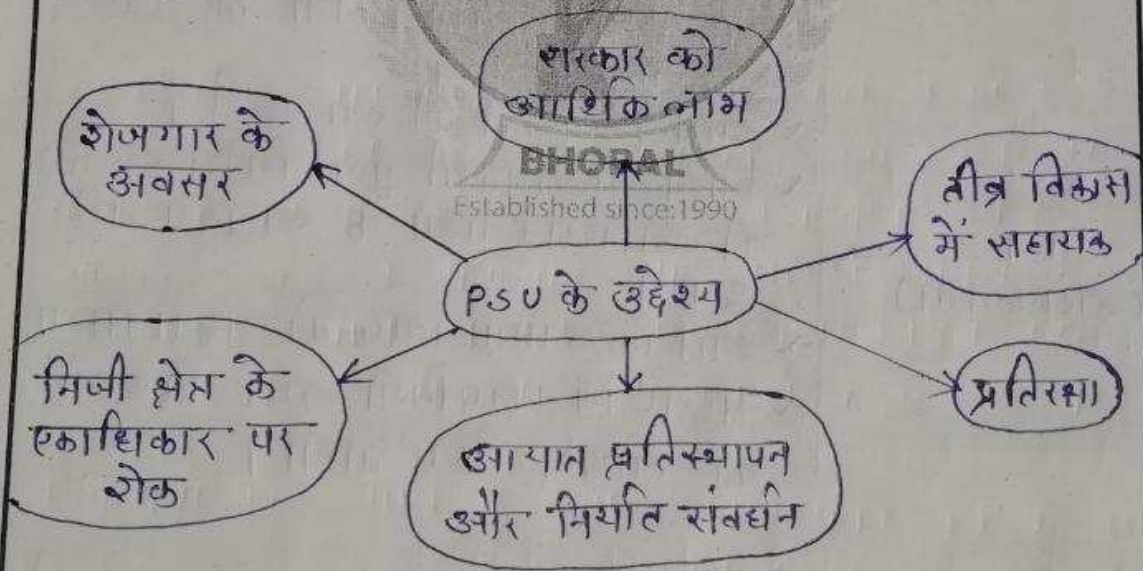 सरकार को
आर्थिक लाभ
रोजगार के
अवसर
BHOPAL
Established since:1990
तीव्र विकास
में सहायक
PSU के उद्देश्य
निजी क्षेत्र के
एकाधिकार पर
रोक
प्रतिरक्षा
आयात प्रतिस्थापन
और निर्यात संवर्धन